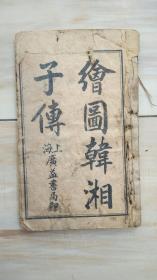 繪圖韓湘
子傳
上海廣益書局印